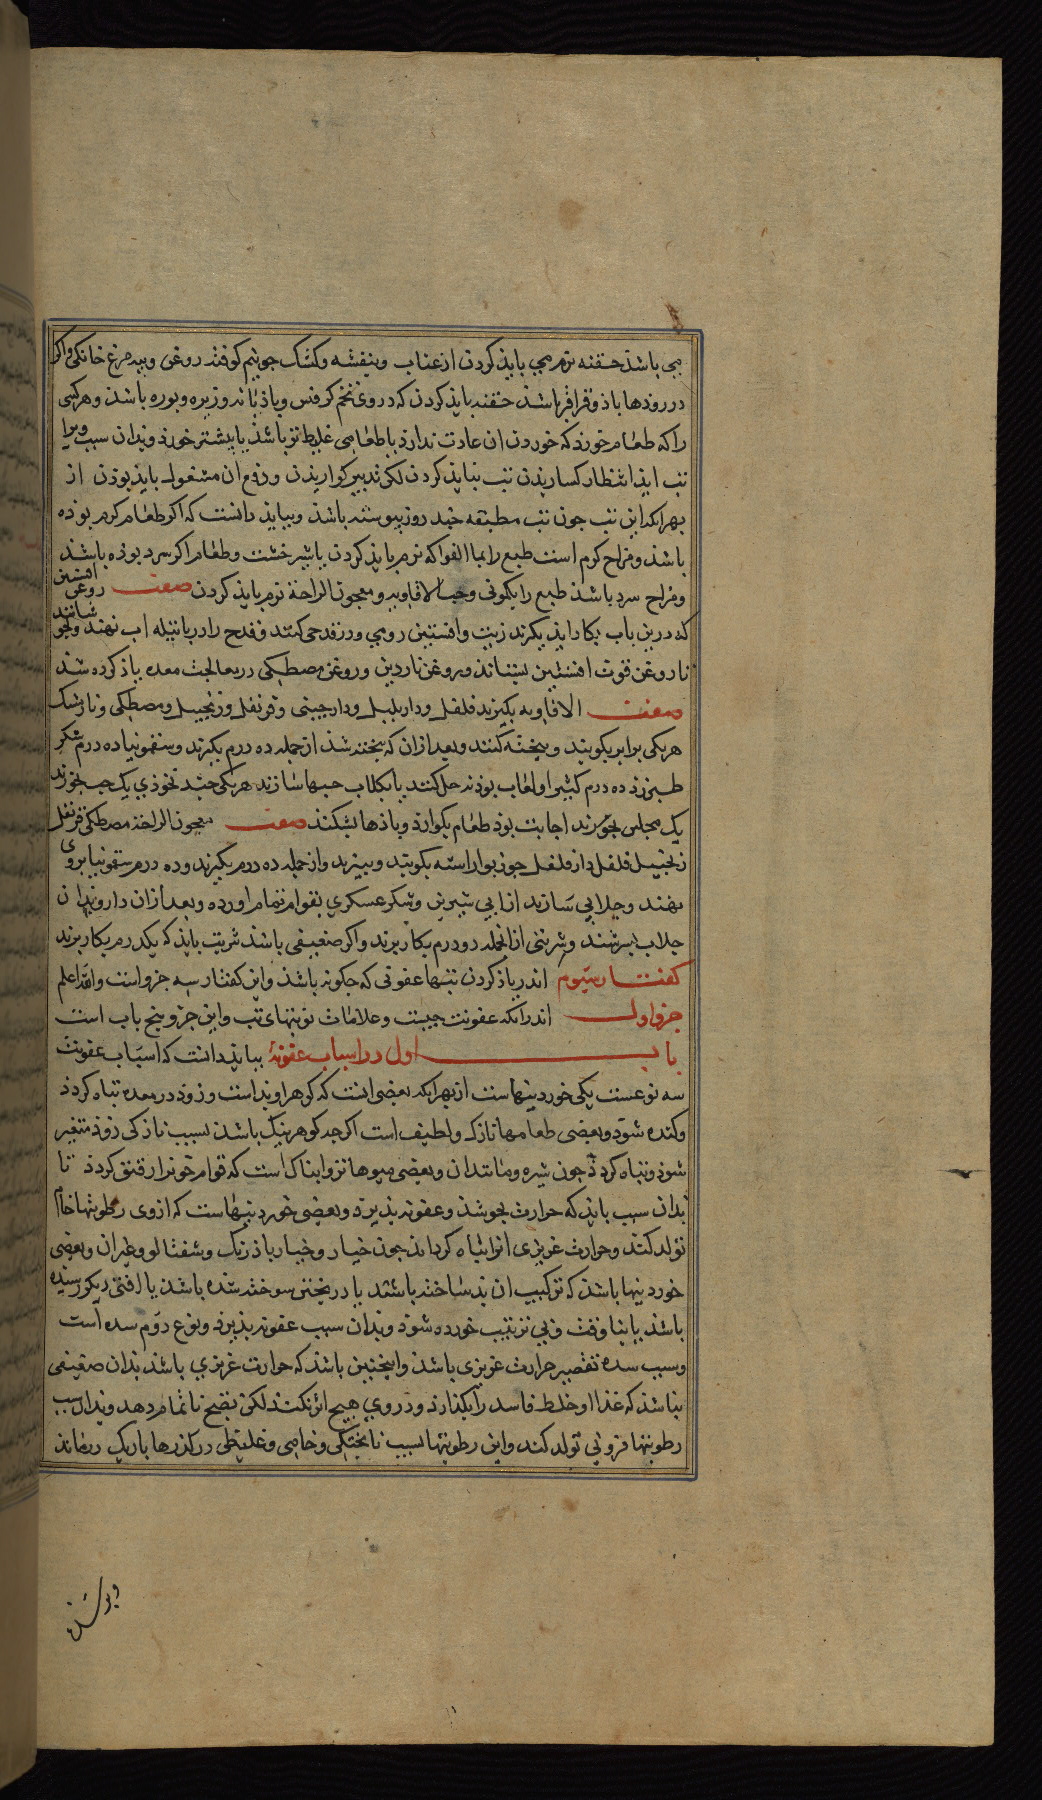 می باشذ حقنه نرم می بایذ کردن از عناب و بنفشه و کشک جو نیم کوفته روغن و پیه مرغ خانکی و اکر
در روذها باذ و قراقر باشذ حقنه بایذ کردن که در وی تخم کرفس و باذیانه و زیره و بوره باشذ و هر کسی
را که طعام خورذ که خوردن ان عادت ندارذ یا طعامی غلیظ تر باشذ یا بیشتر خورذ و بذان سبب ویرا
تب ایذ انتظار کساریذن تب نبایذ کردن لکن تدبیر کواریذن و دفع ان مشغول بایذ بوذن از
بهر انکه این تب جون تب مطبقه جند روز پیوسته باشذ و ببایذ دانست که اکر طعام کرم بوذه
باشذ و مزاج کرم است طبع را بما الفواکه نرم بایذ کردن یا شیرخشت و طعام اکر سرد بوذه باشذ
و مزاج سرد باشذ طبع را بکمونی و حب الافاویه و معجون الراحة نرم بایذ کردن صفت روغن افسنتین
که درین باب بکار ایذ بکرند زیت و افسنتین رومی و در قدحی کنند و قدح را در پاتیله اب نهند و بجوشانند
تا روغن قوت افسنتین بستاند و روغن ناردین و روغن مصطکی در معالجت معده یاذ کرده شذ
صفت الافاویه بکیرند فلفل و دارپلپل و دارچینی و قرنفل و زنجبیل و مصطکی و نارمشک
هر یکی برابر بکوبند و بیخته کنند و بعد ازان که بیخته شذ از جمله ده درم بکیرند و سقمونیا ده درم شکر
طبرزذ ده درم کتیرا و لعاب بوذنه حل کنند یا بکلاب حبها سازند هر یکی جند نخوذی یک حب بخورند
یک مجلس بخورند اجابت بوذ طعام بکوارذ و باذها بشکند صفت معجون الراحة مصطکی قرنفل
زنجبیل فلفل دار فلفل جوزبوا راسته بکوبند و ببیزند و از جمله ده درم بکیرند و ده درم سقمونیا بروی
نهند و جلابی سازند از ابی شیرین و شکر عسکری بقوام تمام اورده و بعد ازان دارو بذان
جلاب بسرشند و شربتی از انجمله دو درم بکار برند و اکر ضعیفی باشذ شربت بایذ که یکدرم بکار برند
کفتار سیوم اندر یاذ کردن تبها عفونی که جکونه باشذ و این کفتار سه جزو است والله اعلم
جزو اول اندر انکه عفونت جیست و علامات نوبتهای تب و این جزو پنج باب است
باب اول در اسباب عفونة ببایذ دانست که اسباب عفونت
سه نوعست یکی خوردنیهاست از بهر انکه بعضی انست که کوهر او بد است و زود در معده تباه کردذ
و کنده شوذ و بعضی طعامها نازک و لطیف است اکرجه کوهر نیک باشذ بسبب نازکی زوذ متغیر
شوذ و تباه کردذ جون شیر و مانند ان و بعضی میوها تر و ابناک است که قوام خونرا رقیق کردذ تا
بذان سبب بایذ که حرارت بجوشذ و عفونه پذیرذ و بعضی خوردنیهاست که ازوی رطوبتها خام
تولد کند و حرارت غریزی انرا تباه کرداند جون خیار و خیار باذرنک و شفتالو و غیر ان و بعضی
خوردنیها باشذ که ترکیب ان بذ ساخته باشند یا در پختن سوخته شده باشذ یا افتی دیکر رسیذه
باشذ یا بنا وقت و بی ترتیب خورده شوذ و بذان سبب عفونه پذیرذ و نوع دوم سده است
و سبب سده تقصیر حرارت غریزی باشذ و اینجنین باشذ که حرارت غریزی باشذ بذان ضعیفی
نباشذ که غذا و خلط فاسد را بکذارذ و در وی هیج اثر نکند لکن نضج ناتمام دهد و بذان سبب
رطوبتها فزونی تولد کند و این رطوبتها بسبب ناپختکی و خامی و غلیظی در کذرها باریک درماند